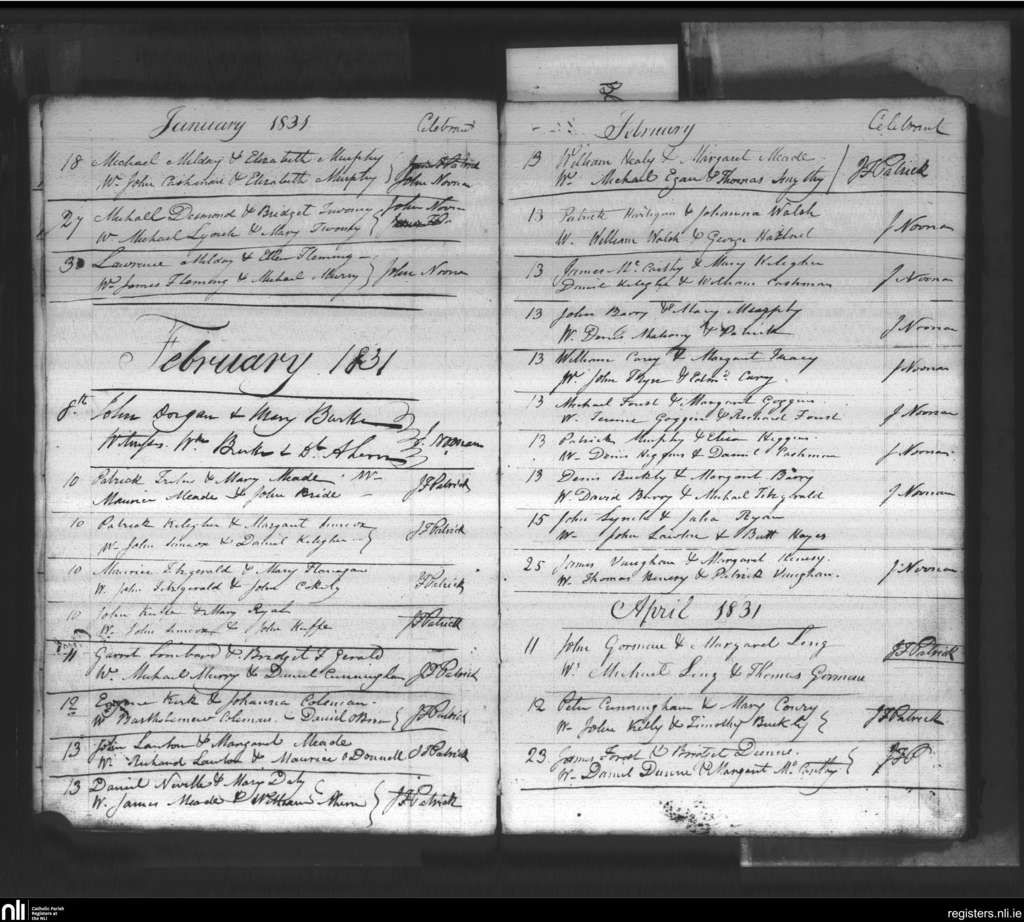 January 1831 Celebrant
18 Michael Milday & Elizabeth Murphy
Ws John Cashman & Elizabeth Murphy John Noonan
27 Michall Desmond & Bridget Twomy John Noonan
W Michael Lynch & Mary Twomy
30 Lawrence Milday & Ellen Fleming
Ws James Flemong & Michael Murry John Noonan
February 1831
8th John Dorgan & Mary Burke
Witnesses Wm Burke & Ahern J. Noonan
10 Patrick & Mary Meade W
Maurice Meade & John Bride JFPatrick
10 Patrick Keleghe & Margaret
W. John & Daniel Keleghe JFPatrick
10 Maurice Fitzgerald & Mary Flanagan
W. John Fitzgerald & John JFPatrick
10 John & Mary Ryal
W. John & John Keeffe JFPatrick
11 Garrot Lombard & Bridget F Gerald
Ws Michael Murry & Daniel Cunningham JFPatrick
12 Kirk & Johanna Coleman
W Bartholemew Coleman & Daniel JFPatrick
13 John Lawton & Margaret Meade
W. Richard Lawton & Maurice ODonnell JFPatrick
13 Daniel Neville & Mary Daly
W. James Meade & William Ahern JFPatrick
February Celebrant
13 William Healy & Margaret Meade
Ws Michael Egan & Thomas Smythy JFPatrick
13 Patrick Hartigan & Johanna Walsh
W. William Walsh & George J Noonan
13 James Mc Carthy & Mary Keleghe
Daniel Keleghe & William Cashman J Noonan
13 John Barry & Mary
W. Denis Mahony & Patrick J Noonan
13 William Cary & Margaret
W. John & Edmd Cary J Noonan
13 Michael Foust & Margaret Goggins
W. Goggins & Richard Foust J Noonan
13 Patrick Murphy & Eliza Higgins
W. Denis Higgins & Daniel Cashman J Noonan
13 Denis Buckly & Margaret Barry
W. David Barry & Michael Fitzgerald J Noonan
15 John Lynch & Julia Ryan
W John Lawlor & Butt Hayes
25 James Vaughan & Margaret
W. Thomas & Patrick Vaughan J Noonan
April 1831
11 John Gorman & Margaret Ling JFPatrick
Ws Michael Ling & Thomas Gorman
12 Peter Cunningham & Mary Conry
W John Kelly & Timothy Buckly JFPatrick
23 James Forest & Dunne
W Daniel Dunne & Margaret Mc Carthy JFP
nli Catholic Parish
Registers at
the NLI
registers.nli.ie